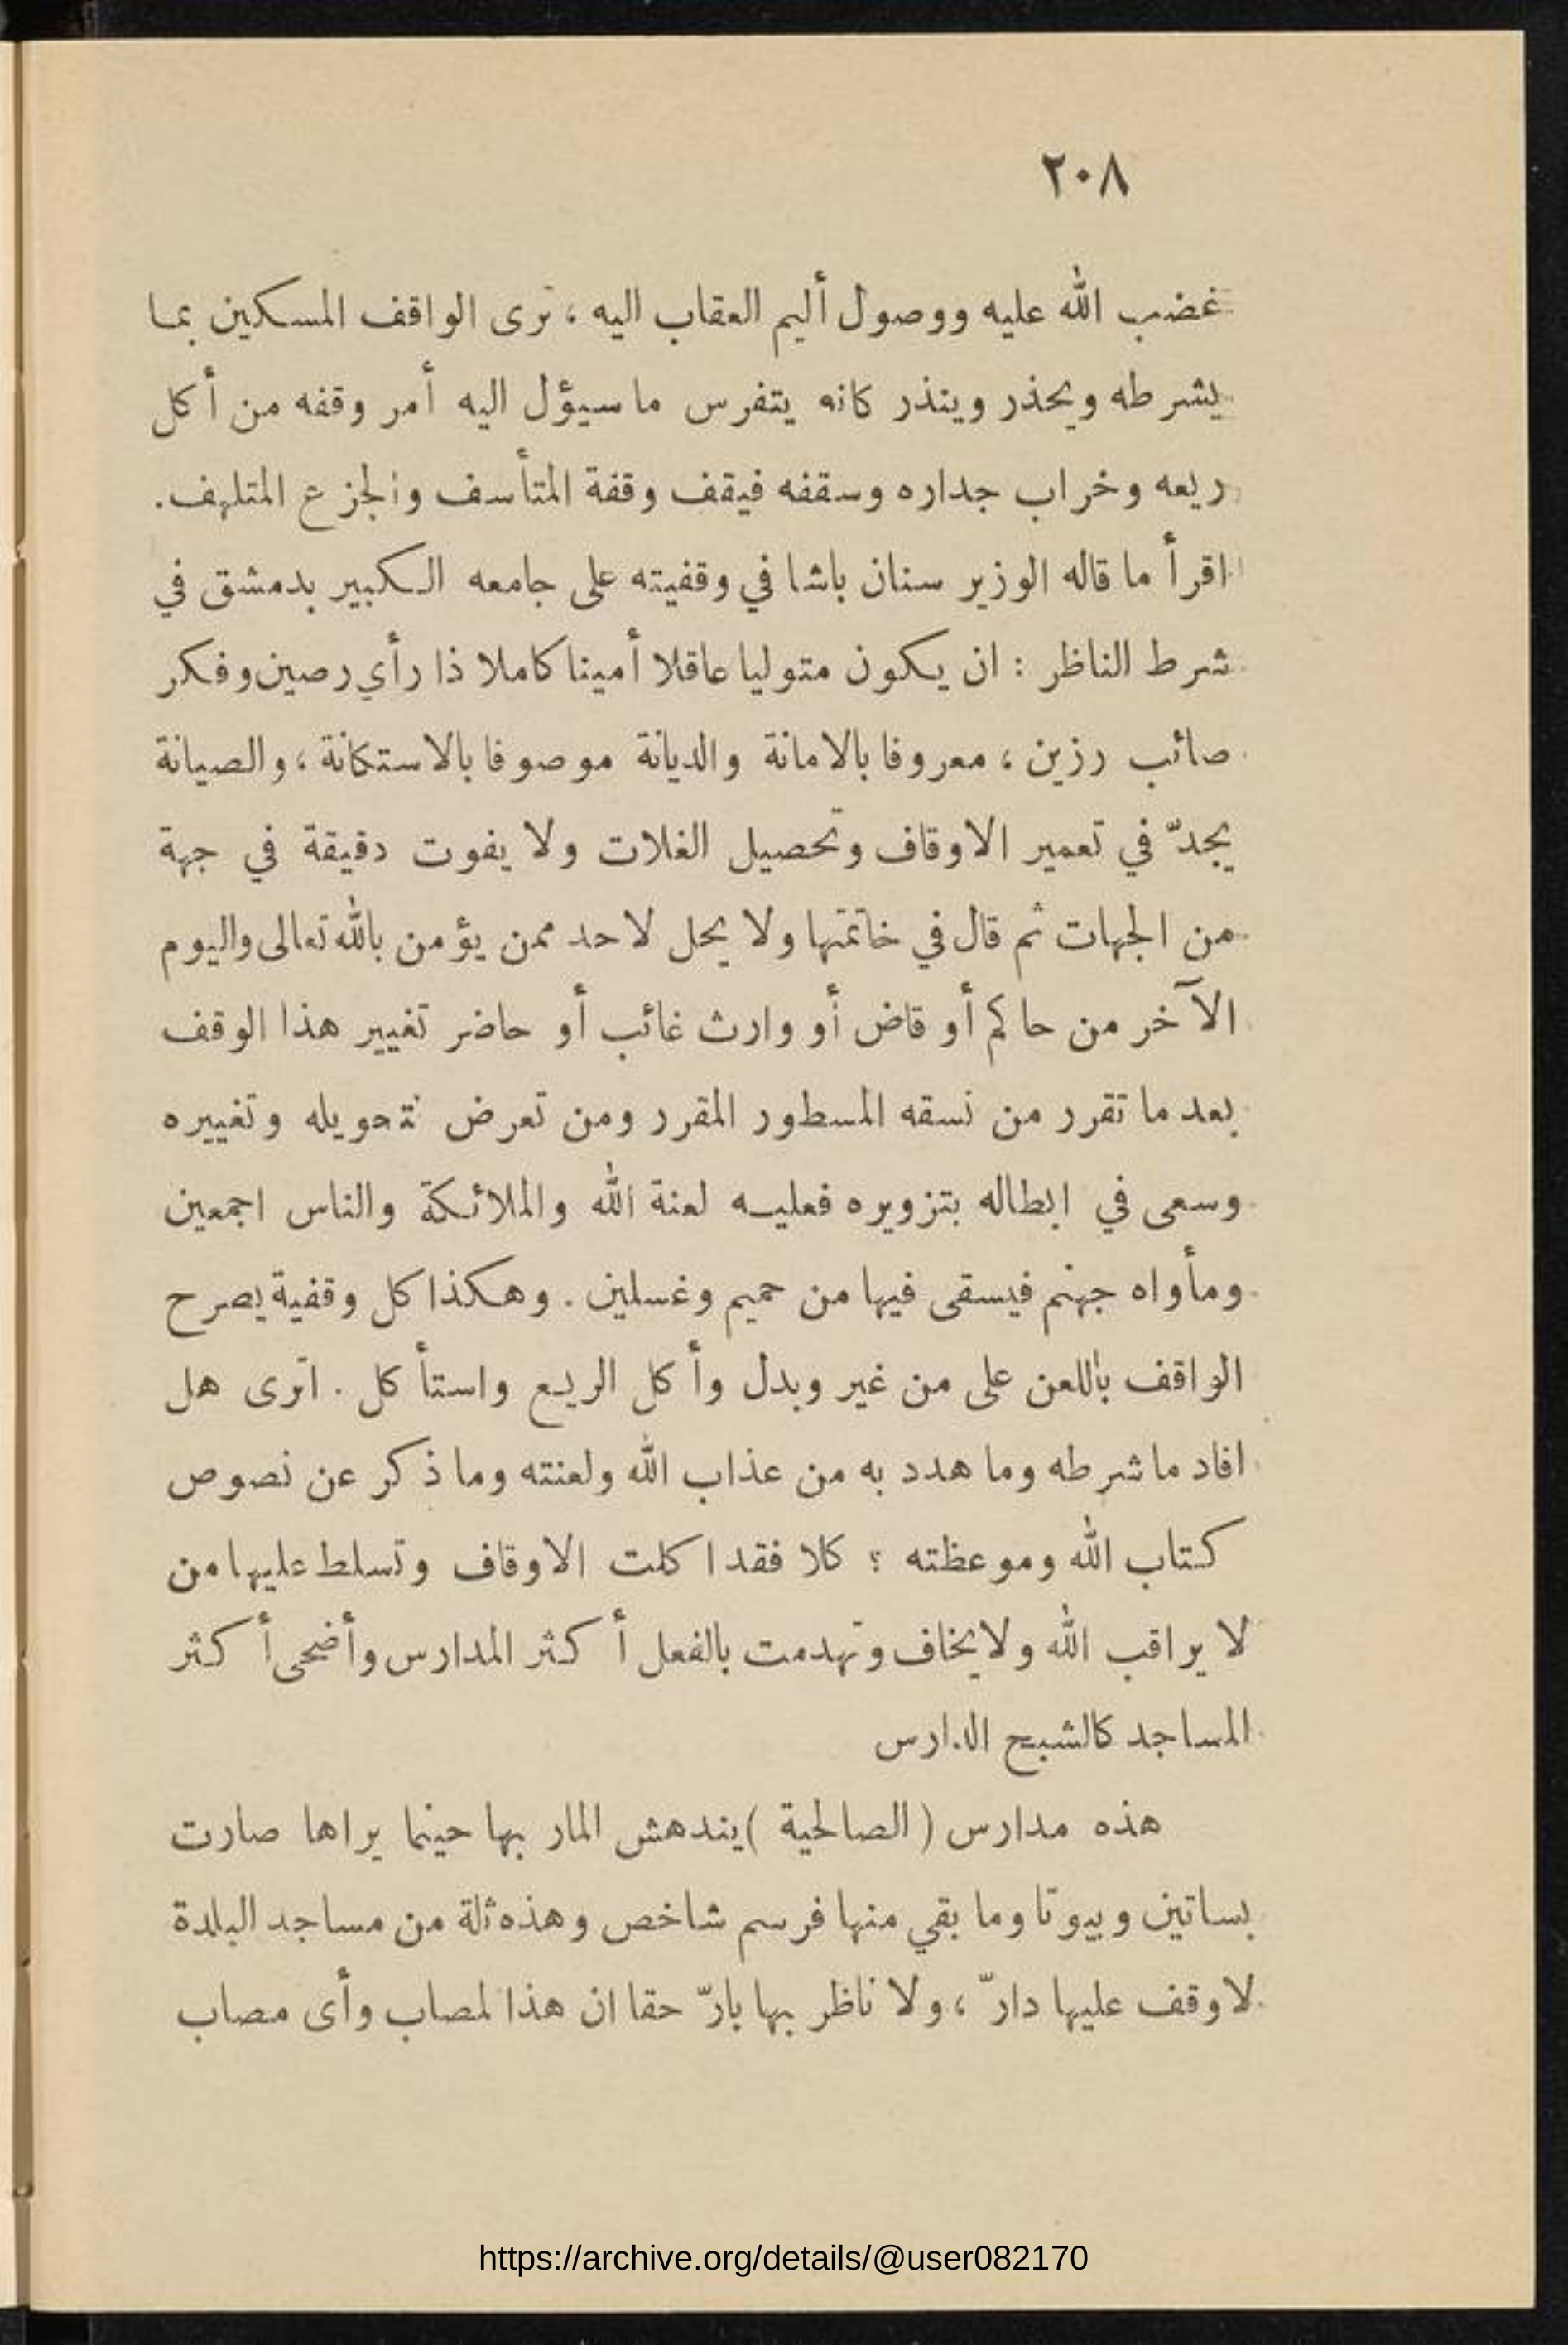 ٢٠٨
غضب الله عليه ووصول أليم العقاب اليه ، ترى الواقف المسكين بما
يشرطه ويحذر وينذر كانه يتفرس ما سيؤل اليه أمر وقفه من أكل
ريعه وخراب جداره وسقفه فيقف وقفة المتأسف والجزع المتلهف.
اقرأ ما قاله الوزير سنان باشا في وقفيته على جامعه الكبير بدمشق في
شرط الناظر : ان يكون متوليا عاقلا أمينا كاملا ذا رأي رصين وفكر
صائب رزين ، معروفا بالامانة والديانة موصوفا بالاستكانة ، والصيانة
يجدّ في تعمير الاوقاف وتحصيل الغلات ولا يفوت دقيقة في جهة
من الجهات ثم قال في خاتمتها ولا يحل لاحد ممن يؤمن بالله تعالى واليوم
الآخر من حاكم أو قاض أو وارث غائب أو حاضر تغيير هذا الوقف
بعد ما تقرر من نسقه المسطور المقرر ومن تعرض لتحويله وتغييره
وسعى في ابطاله بتزويره فعليه لعنة الله والملائكة والناس اجمعين
ومأواه جهنم فيسقى فيها من حميم وغسلين . وهكذا كل وقفية يصرح
الواقف باللعن على من غير وبدل وأكل الريع واستأكل . اترى هل
افاد ما شرطه وما هدد به من عذاب الله ولعنته وما ذكر عن نصوص
كتاب الله وموعظته ؟ كلا فقد اكلت الاوقاف وتسلط عليها من
لا يراقب الله ولا يخاف وتهدمت بالفعل أكثر المدارس وأضحى أكثر
المساجد كالشبح الدارس
هذه مدارس ( الصالحية ) يندهش المار بها حينما يراها صارت
بساتين وبيوتا وما بقي منها فرسم شاخص وهذه ثلة من مساجد البلدة
لا وقف عليها دارّ ، ولا ناظر بها بارّ حقا ان هذا لمصاب وأى مصاب
https://archive.org/details/@user082170